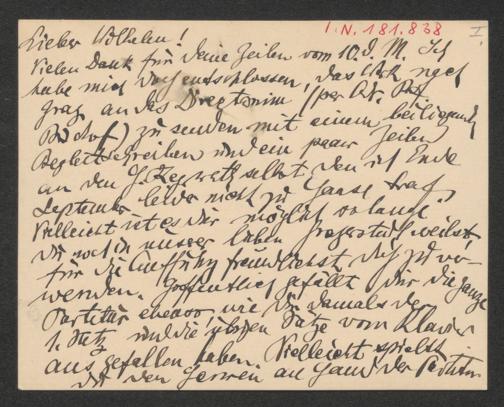 I.N. 181.838
I.
Lieber Wilhelm!
Vielen Dank für deine Zeilen vom 10. d. M. Ich
habe mich doch entschlossen, das Werk nach
Graz an das Direktorium (per Adr. Prof.
Bischof) zu senden mit einem beiliegenden
Begleitschreiben und ein paar Zeilen
an den H. selbst, den ich Ende
September leider nicht zu Hause traf.
Vielleicht ist es dir möglich solang
du noch in unserer lieben weilst,
für die Aufführung freundlichst dich zu ver-
wenden. Hoffentlich gefällt dir die ganze
Partitur ebenso, wie dir damals der
1. Satz und die übrigen Sätze vom Klavier
aus gefallen haben. Vielleicht spielst
du den an Hand der Partitur